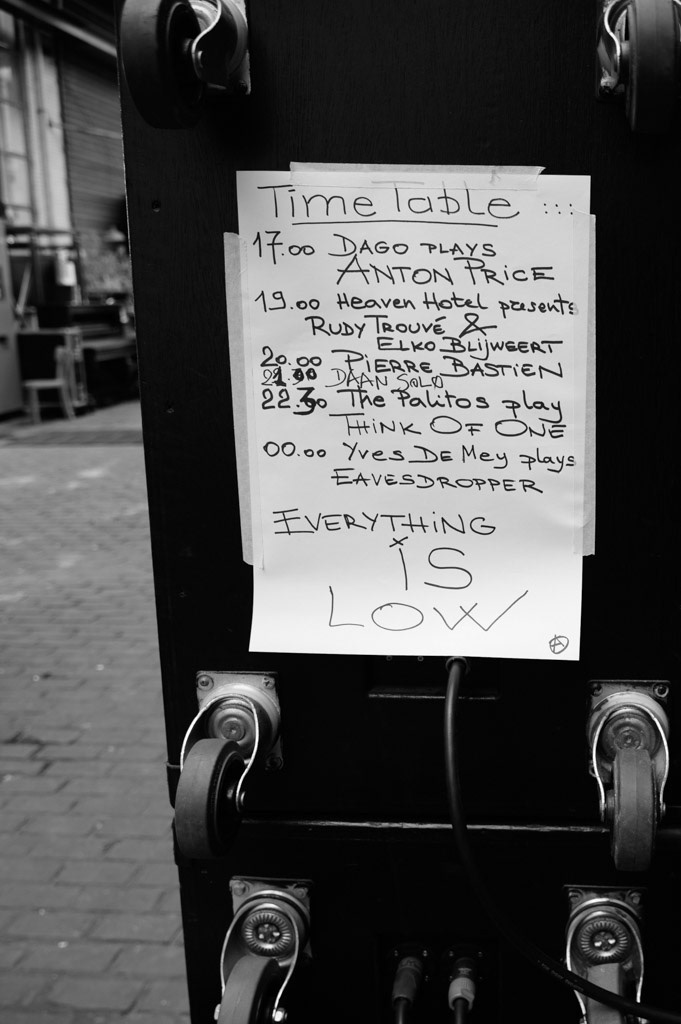 Time Table :::
17.00 DAGO PLAYS
ANTON PRICE
19.00 Heaven Hotel presents
RUDY TROUVÉ &
ELKO BLIJWEERT
20.00 PIERRE BASTIEN
21.30 DAAN SOLO
22.30 The Palitos play
THINK OF ONE
00.00 YVES DE MEY plays
EAVESDROPPER
EVERYTHING
iS
LOW
A